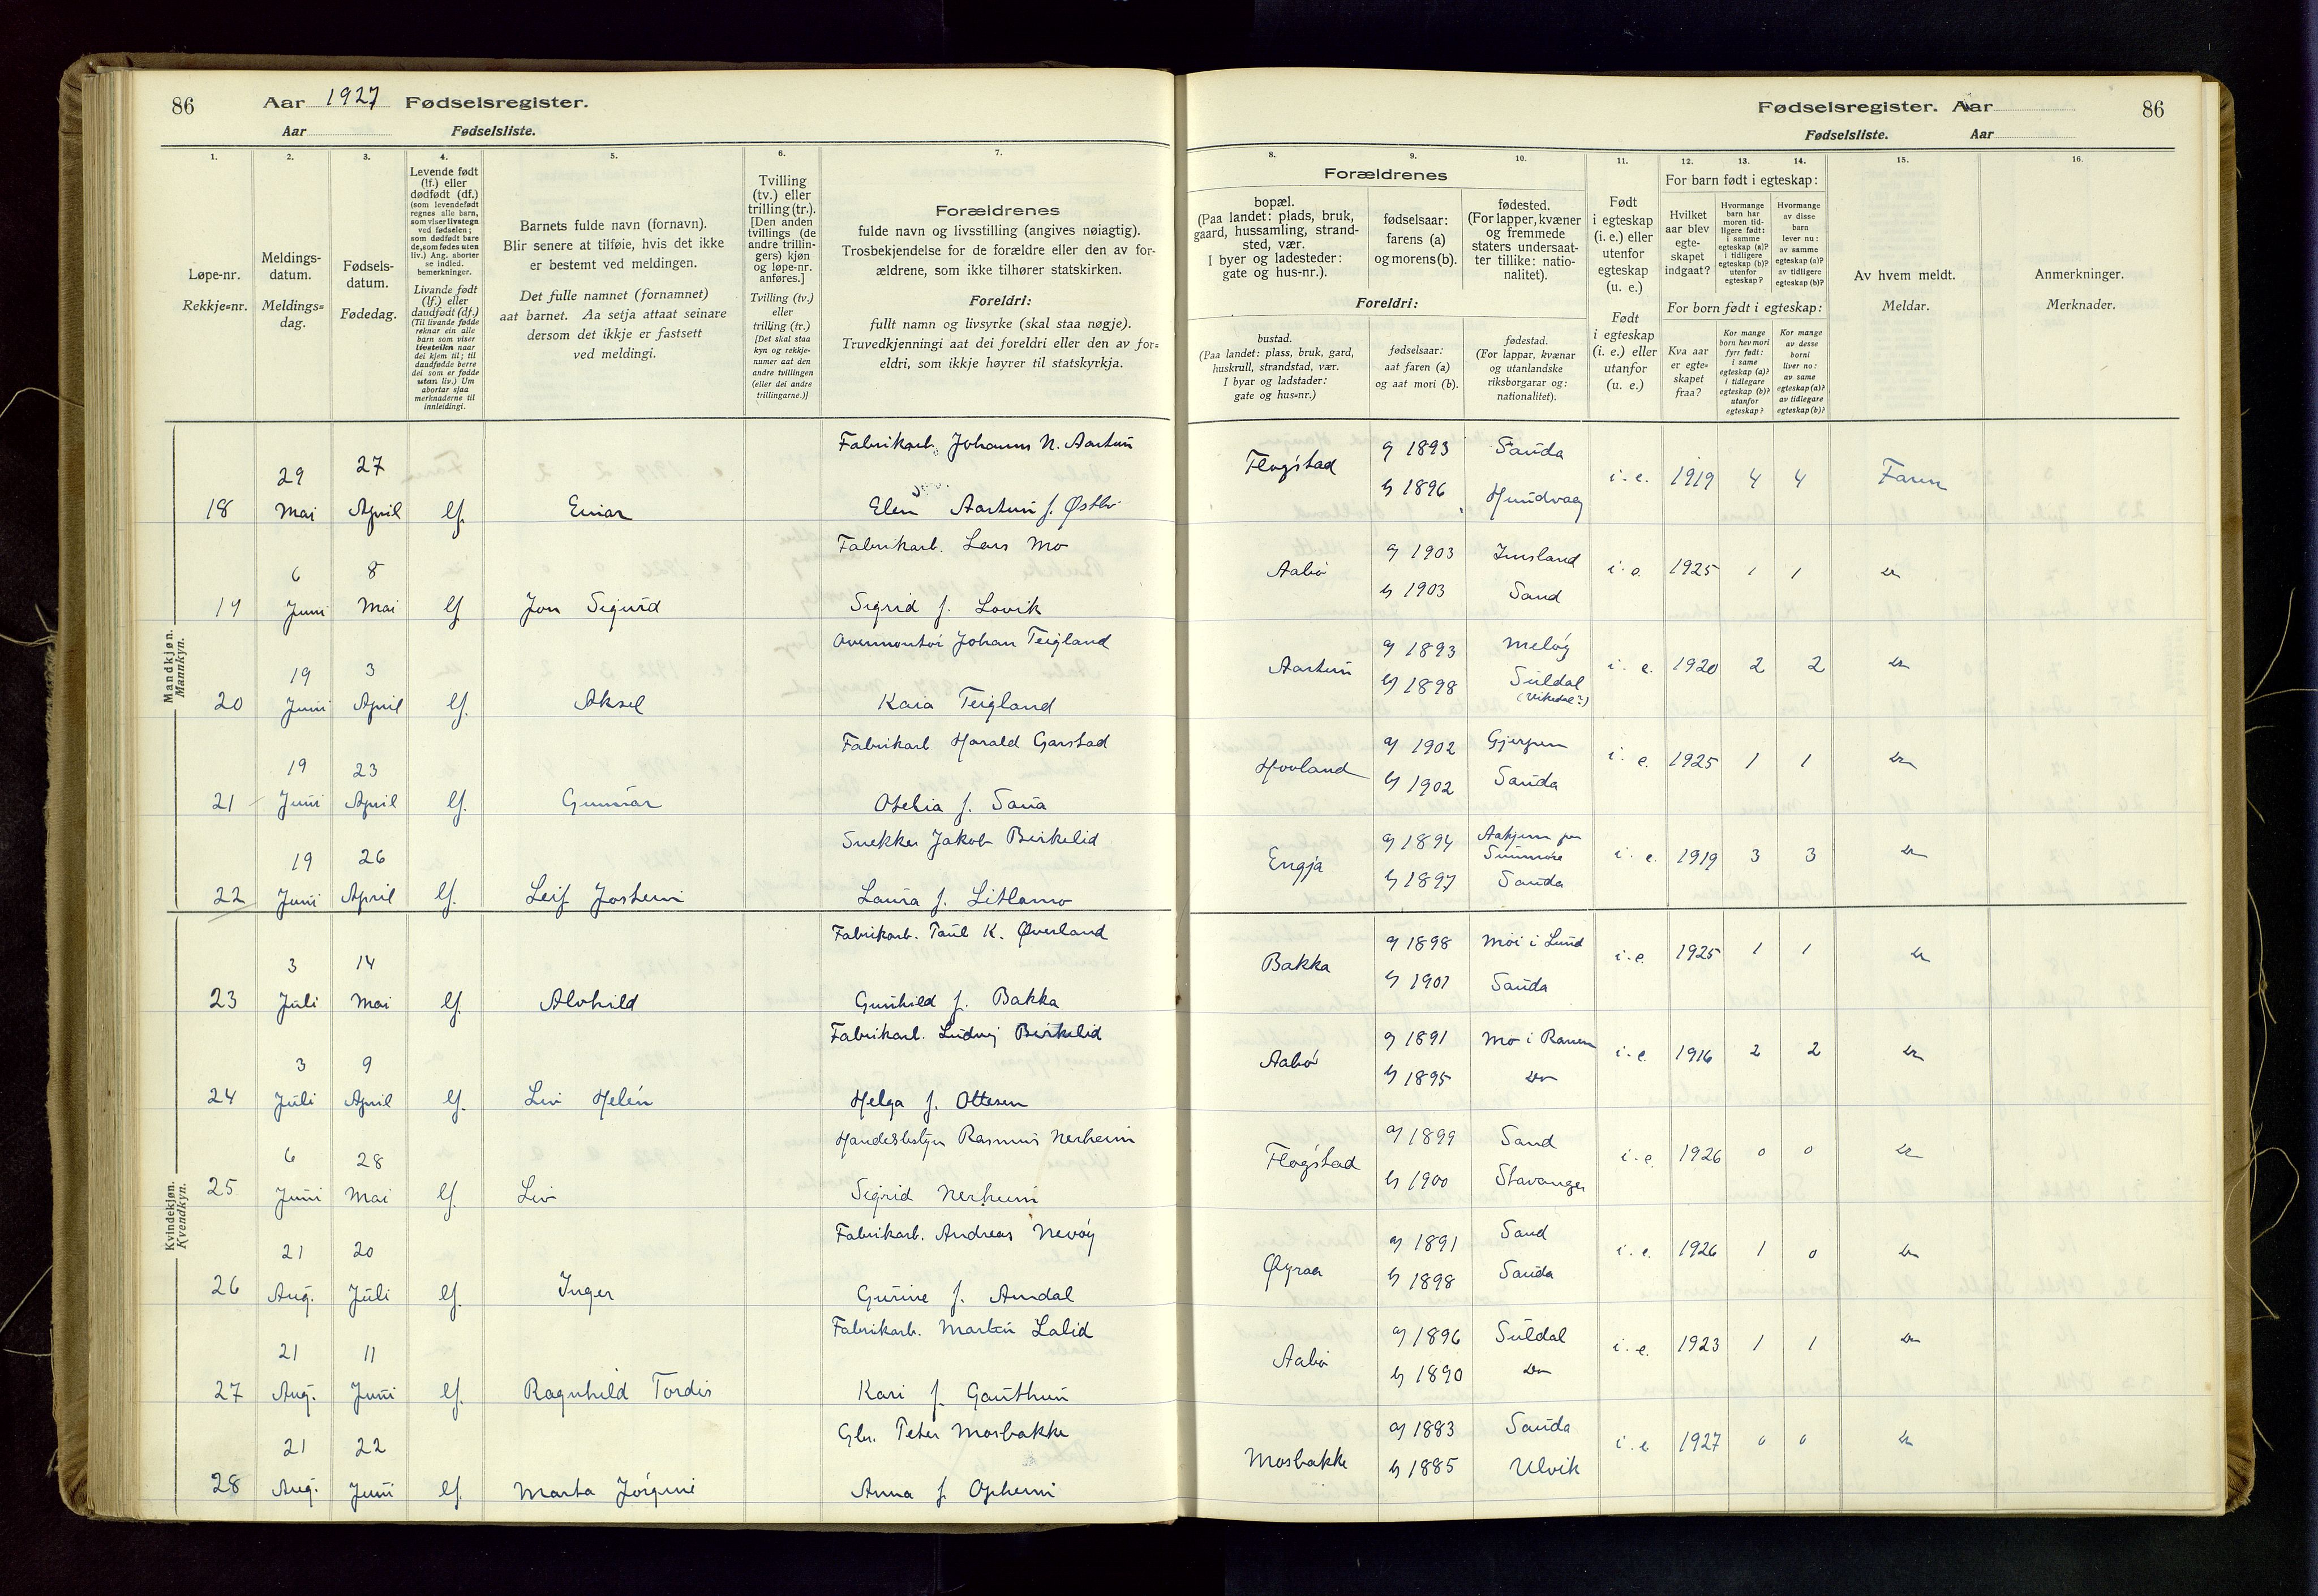 86 Aar 1927 Fødselsregister.
Aar Fødselsliste.
Fødselsregister. Aar 86
Fødselsliste. Aar
1. 2. 3. 4. 5. 6. 7. 8. 9. 10. 11. 12. 13. 14. 15. 16.
Løpe-nr.
Rekkje=nr.
Meldings-
datum.
Meldings=
dag.
Fødsels-
datum.
Fødedag.
Levende født
(lf.) eller
dødfødt (df.)
(som levendefødt
regnes alle barn,
som viser livstegn
ved fødselen;
som dødfødt bare
de, som fødes uten
liv.) Ang. aborter
se indled.
bemerkninger.
Livande født
(lf.) eller
daudfødt (df.)
(Til livande fødde
reknar ein alle
barn som viser
livsteikn naar
dei kjem til; til
daudfødde berre
dei som er fødde
utan liv.) Um
abortar sjaa
merknaderne til
innleidingi.
Barnets fulde navn (fornavn).
Blir senere at tilføie, hvis det ikke
er bestemt ved meldingen.
Det fulle namnet (fornamnet)
aat barnet. Aa setja attaat seinare
dersom det ikkje er fastsett
ved meldingi.
Tvilling
(tv.) eller
trilling (tr.).
[Den anden
tvillings (de
andre trillin-
gers) kjøn
og løpe-nr.
anføres.]
Tvilling (tv.)
eller
trilling (tr.)
[Det skal staa
kyn og rekkje-
numer aat den
andre tvillingen
(eller dei andre
trillingarne.)]
Forældrenes
fulde navn og livsstilling (angives nøiagtig).
Trosbekjendelse for de forældre eller den av for-
ældrene, som ikke tilhører statskirken.
Foreldri:
fullt namn og livsyrke (skal staa nøgje).
Truvedkjenningi aat dei foreldri eller den av for=
eldri, som ikkje høyrer til statskyrkja.
Forældrenes
bopæl.
(Paa landet: plads, bruk,
gaard, hussamling, strand-
sted, vær.
I byer og ladesteder:
gate og hus-nr.).
fødselsaar:
farens (a)
og morens (b).
fødested.
(For lapper, kvæner
og fremmede
staters undersaat-
ter tillike: natio-
nalitet).
Foreldri:
bustad.
(Paa landet: plass, bruk, gard,
huskrull, strandstad, vær.
I byar og ladstader:
gate og hus=nr.)
fødselsaar:
aat faren (a)
og aat mori (b).
fødestad.
(For lappar, kvænar
og utanlandske
riksborgarar og:
nationalitet).
Født
i egteskap
(i. e.) eller
utenfor
egteskap
(u. e.)
Født
i egteskap
(i. e.) eller
utanfor
(u. e.)
For barn født i egteskap:
Hvilket
aar blev
egte-
skapet
indgaat?
Hvormange
barn har
moren tid-
ligere født:
i samme
egteskap (a)?
i tidligere
egteskap (b)?
utenfor
egteskap?
Hvormange
av disse
barn
lever nu:
av samme
egteskap (a)?
av tidligere
egteskap (b)?
For born født i egteskap:
Kva aar
er egte-
skapet
fraa?
Kor mange
born hev mori
fyrr født:
i same
egteskap (a)?
i tidlegare
egteskap (b)?
utanfor
egteskap?
Kor mange
av desse
borni
liver no:
av same
egteskap (a)?
av tidlegare
egteskap (b)?
Av hvem meldt.
Meldar.
Anmerkninger.
Merknader.
Mandkjøn.
Mannkyn.
Fabrikarb. Johannes N. Aartun
29 27
18 Mai April lf. Einar Elen Aartun f. Østbø
Flogstad a 1893 Sauda i. e. 1919 4 4 Faren
b 1896 Hundvaag
Fabrikarb. Lars Mo
6 8
19 Juni Mai lf. Jon Sigurd Sigrid f. Løvik
Aabø a 1903 Imsland i. e. 1925 1 1 Do
b 1903 Sand
Overmontør Johan Teigland
19 3
20 Juni April lf. Aksel Kaia Teigland
Aartun a 1893 Meløy i. e. 1920 2 2 Do
b 1898 Suldal
(Vikedal?)
Fabrikarb Harald Garstad
19 23
21 Juni April lf. Gunnar Otelia f. Saua
Hovland a 1902 Gjerpen i. e. 1925 1 1 Do
b 1902 Sauda
Snekker Jakob Birkelid
19 26
22 Juni April lf. Leif Jostein Laura f. Litlamo
Engja a 1894 Søndmøre i. e. 1919 3 3 Do
b 1897 Sauda
Kvindekjøn.
Kvendkyn.
Fabrikarb. Paul K. Øverland
3 14
23 Juli Mai lf. Alvhild Gunhild f. Bakka
Bakka a 1898 Moi i Lund i. e. 1925 1 1 Do
b 1901 Sauda
Fabrikarb. Ludvig Birkelid
3 9
24 Juli April lf. Liv Helén Helga f. Ottesen
Aabø a 1891 Mo i Ranen i. e. 1916 2 2 Do
b 1895 Do
Handelsbetjen Rasmus Nerheim
6 28
25 Juni Mai lf. Liv Sigrid Nerheim
Flogstad a 1899 Sand i. e. 1926 0 0 Do
b 1900 Stavanger
Fabrikarb. Andreas Nevøy
21 20
26 Aug. Juli lf. Inger Gurine f. Amdal
Øyraa a 1891 Sand i. e. 1926 1 0 Do
b 1898 Sauda
Fabrikarb. Martin Lalid
21 11
27 Aug. Juni lf. Ragnhild Tordis Kari f. Gauthun
Aabø a 1896 Suldal i. e. 1923 1 1 Do
b 1890 Do
Gbr. Peter Mosbakke
21 22
28 Aug. Juni lf. Marta Jørgine Anna f. Opheim
Mosbakke a 1883 Sauda i. e 1927 0 0 Do
b 1885 Ulvik